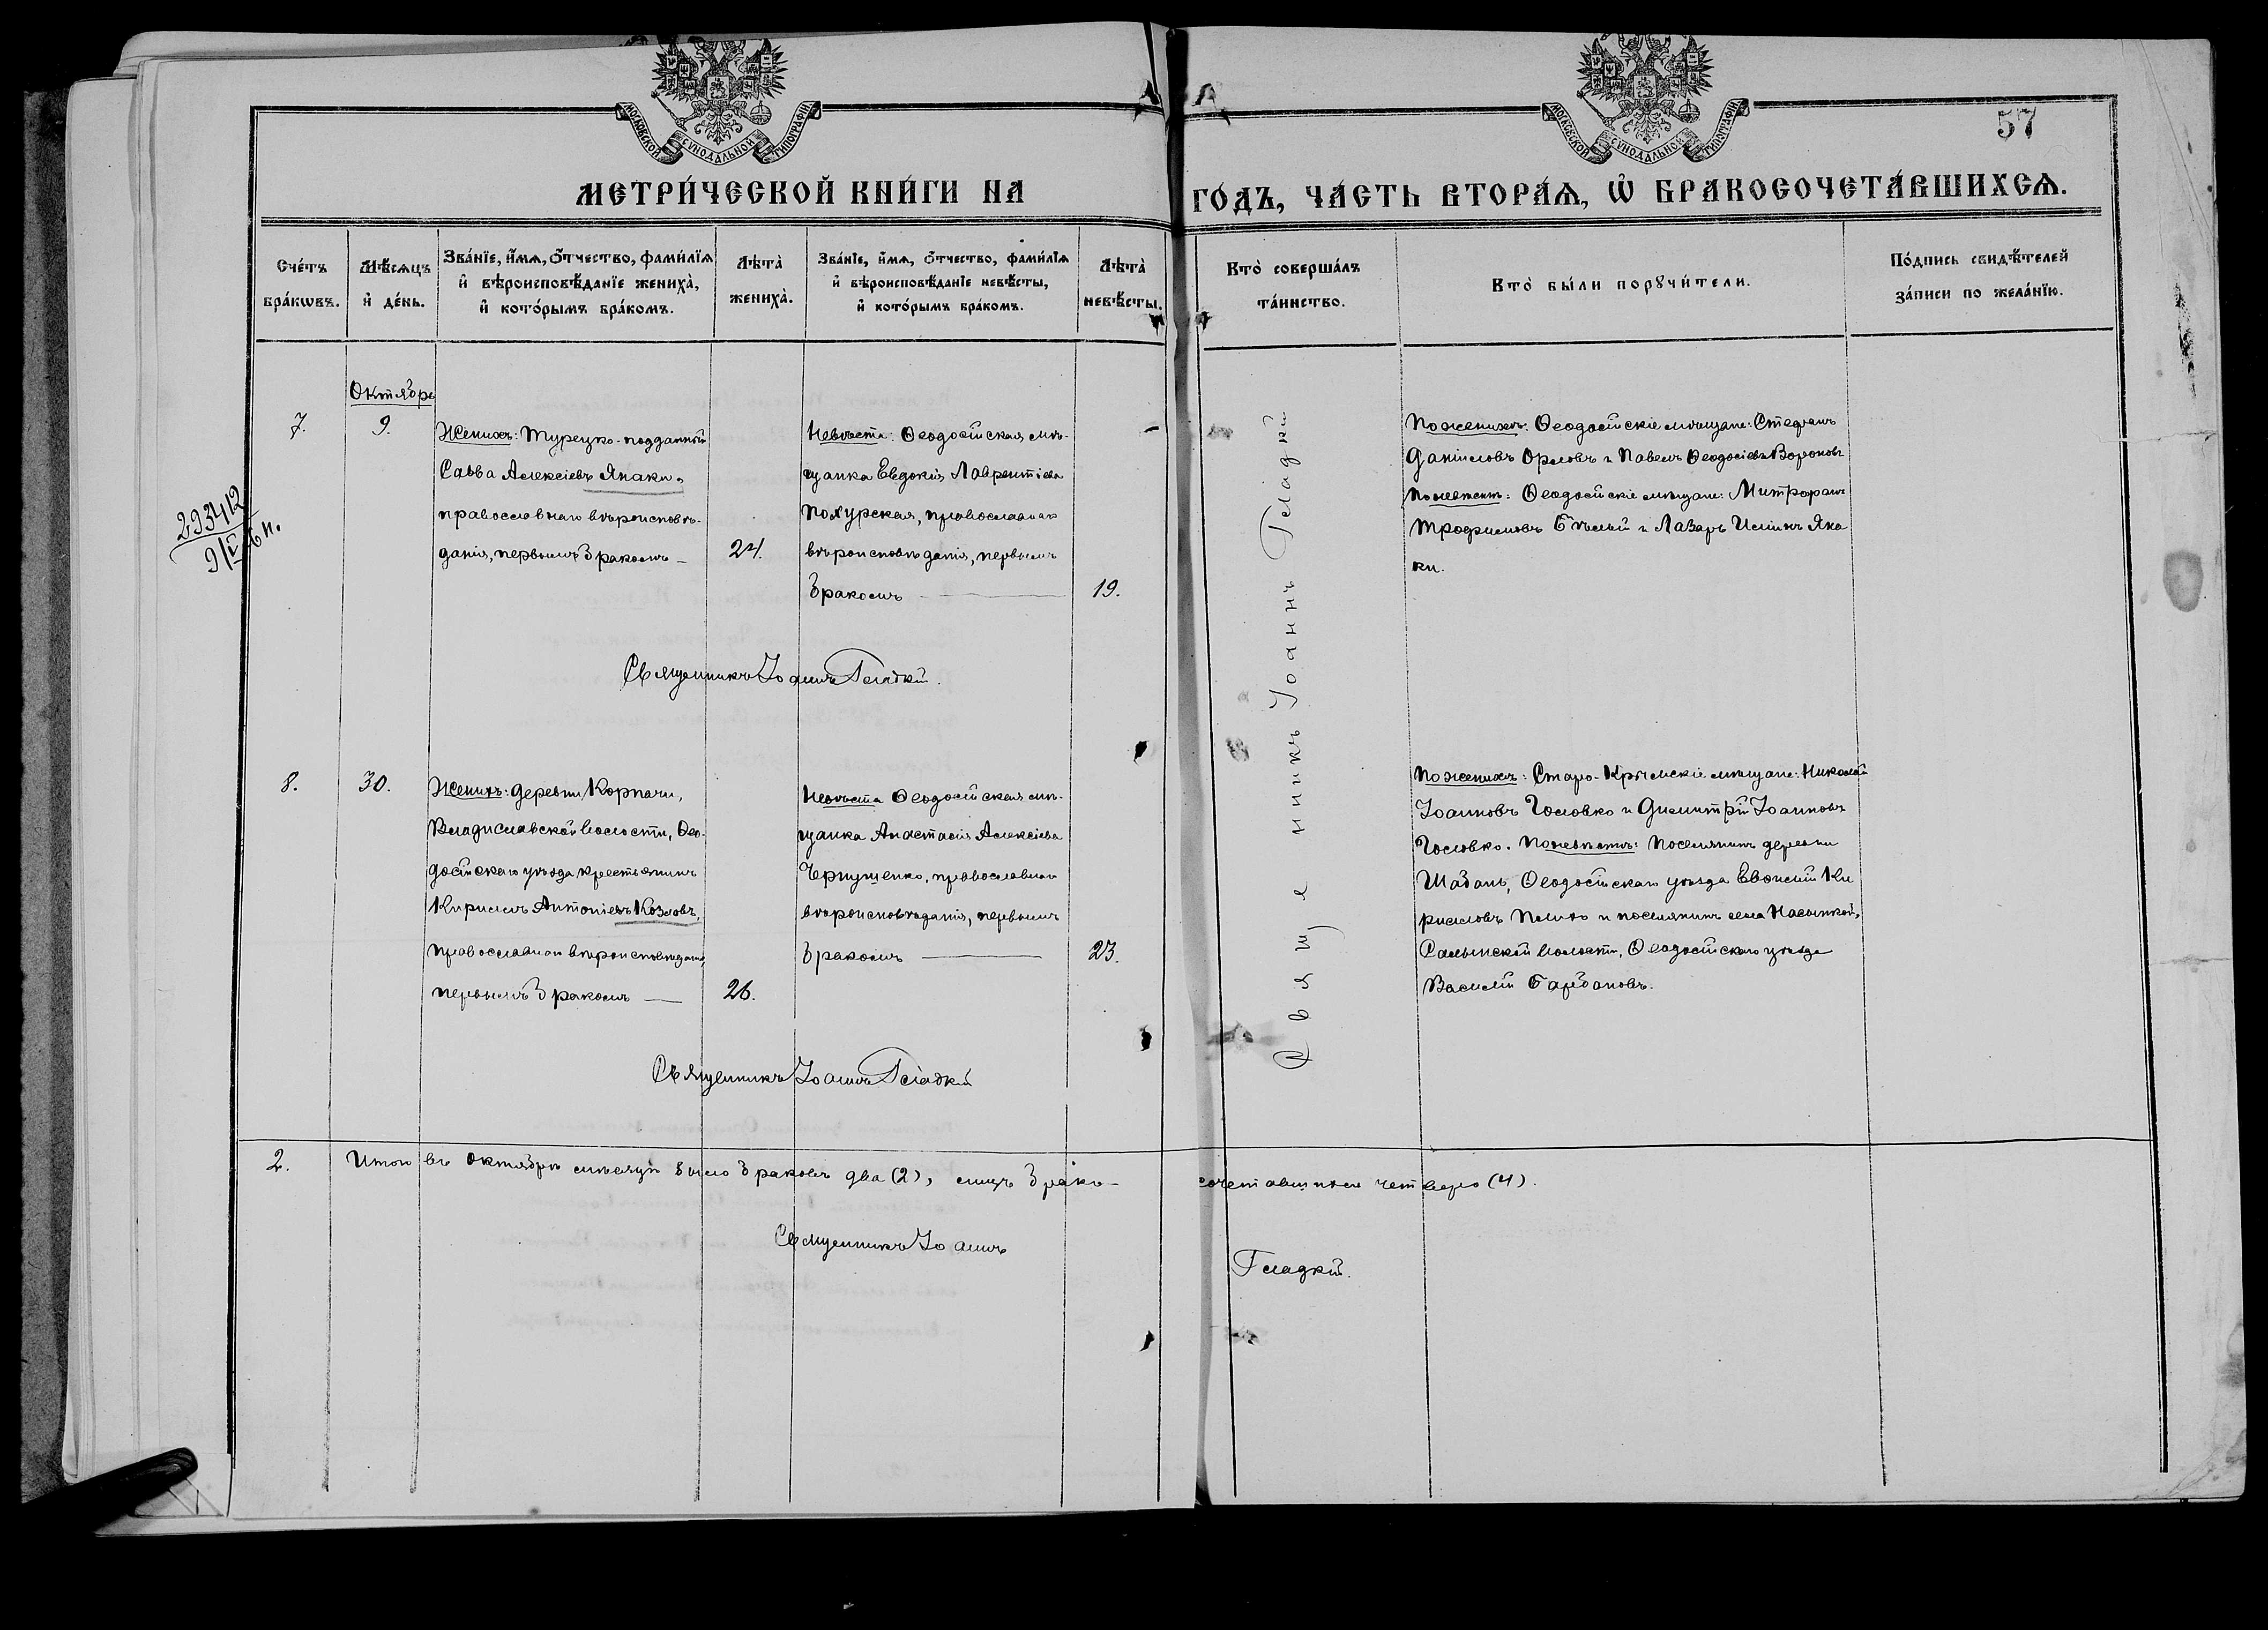 МОСКОВСКОЙ СѴНОДАЛЬНОЙ ТИПОГРАФІИ
МОСКОВСКОЙ СѴНОДАЛЬНОЙ ТИПОГРАФІИ
57
МЕТРИ́ЧЕСКОЙ КНИ́ГИ НА
ГО́ДЪ, ЧА́СТЬ ВТОРА́Ѧ, Ѽ БРАКОСОЧЕТА́ВШИХСѦ.
Сче́тъ
бра́кѡвъ.
Мѣ́сѧцъ
и҆ де́нь.
Зва́нїе, и҆́мѧ, ѻ҆́тчество, фами́лїѧ
и҆ вѣроисповѣ́данїе жениха̀,
и҆ кото́рымъ бра́комъ.
Лѣта̀
жениха̀.
Зва́нїе, и҆́мѧ, ѻ҆́тчество, фами́лїѧ
и҆ вѣроисповѣ́данїе невѣ́сты,
и҆ кото́рымъ бра́комъ.
Лѣта̀
невѣ́сты.
Кто̀ соверша́лъ
та́инство.
Кто̀ бы́ли порꙋчи́тели.
По́дпись свидѣ́телей
за́писи по жела́нїю.
Октябрь
7.
9.
Женихъ: Турецко-подданный
Савва Алексіевъ Янаки,
православнаго вѣроисповѣ-
данія, первымъ бракомъ —
24.
Невѣста: Ѳеодосійская мѣ-
щанка Евдокія Лаврентіева
православнаго
вѣроисповѣданія, первымъ
бракомъ —
19.
Священникъ Іоаннъ Гладкій
По женихѣ: Ѳеодосійскіе мѣщане: Стефанъ
Даніиловъ Орловъ и Павелъ Ѳеодосіевъ Вороновъ
По невѣстѣ: Ѳеодосійскіе мѣщане: Митрофанъ
Трофимовъ Бѣлый и Лазарь Ильинъ Яна
ки.
29342
9/V
Священникъ Іоаннъ Гладкій.
8.
30.
Женихъ: деревни Корпачи,
Владиславской волости, Ѳео-
досійскаго уѣзда крестьянинъ
Кириллъ Антоніевъ Козловъ,
православнаго вѣроисповѣданія,
первымъ бракомъ —
26.
Невѣста Ѳеодосійская мѣ-
щанка Анастасія Алексіева
Чернушенко, православнаго
вѣроисповѣданія, первымъ
бракомъ —
23.
По женихѣ: Старо-Крымскіе мѣщане: Николай
Іоанновъ Головко и Димитрій Іоанновъ
Головко. По невѣстѣ: поселянинъ деревни
Шабань, Ѳеодосійскаго уѣзда Евѳимій Ки
рилловъ и поселянинъ села Насыпкой,
Салынской волости, Ѳеодосійскаго уѣзда
Василій Барбановъ.
Священникъ Іоаннъ Гладкій
2.
Итого въ октябрѣ мѣсяцѣ было браковъ два (2), лицъ брако-
сочетавшихся четверо (4).
Священникъ Іоаннъ
Гладкій.